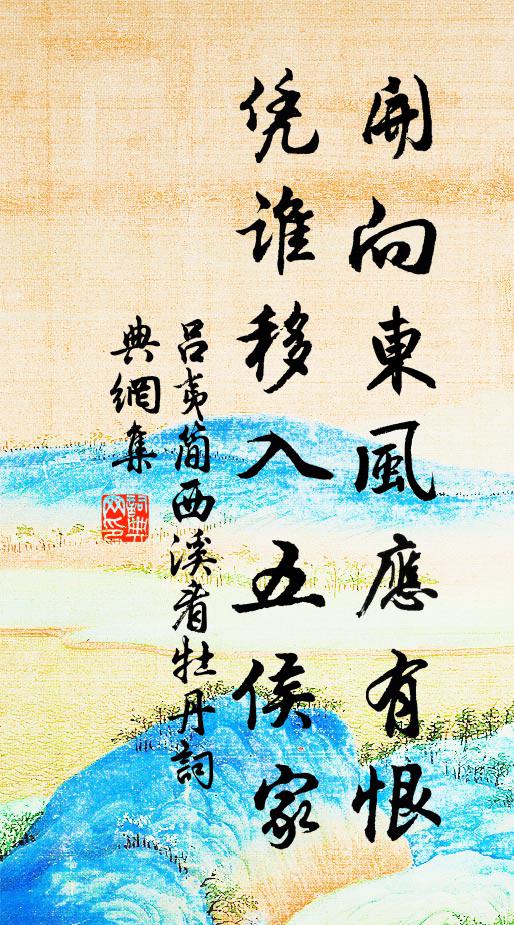 開向東風應有恨
凭誰移入五侯家
呂夷簡西溪看牡丹詞
典網集
詞典